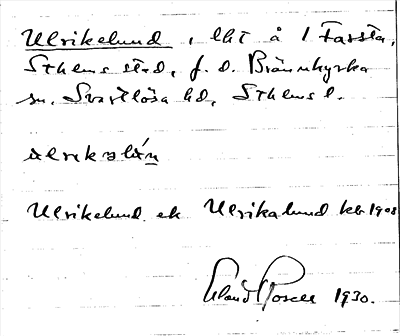 Ulrikelund, lht å 1 Farsta,
Sthlms stad, f. d. Brännkyrka
sn. Svartlösa hd, Sthlms l.
ulrikəlán
Ulrikelund ek Ulrikalund kb 1908
1930.